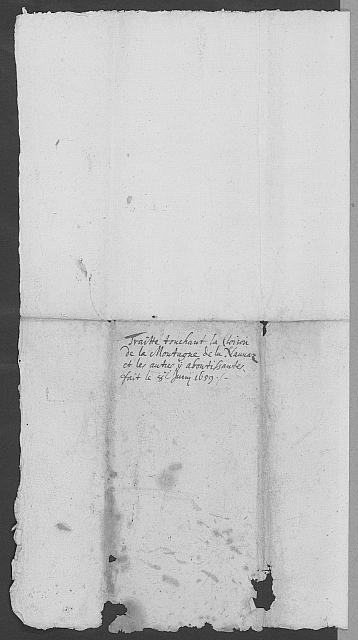 Traitté touchant la Cloison
de la Montagne de la Nauaz
et les autres y aboutissantes
fait le 8e Juin 1659.